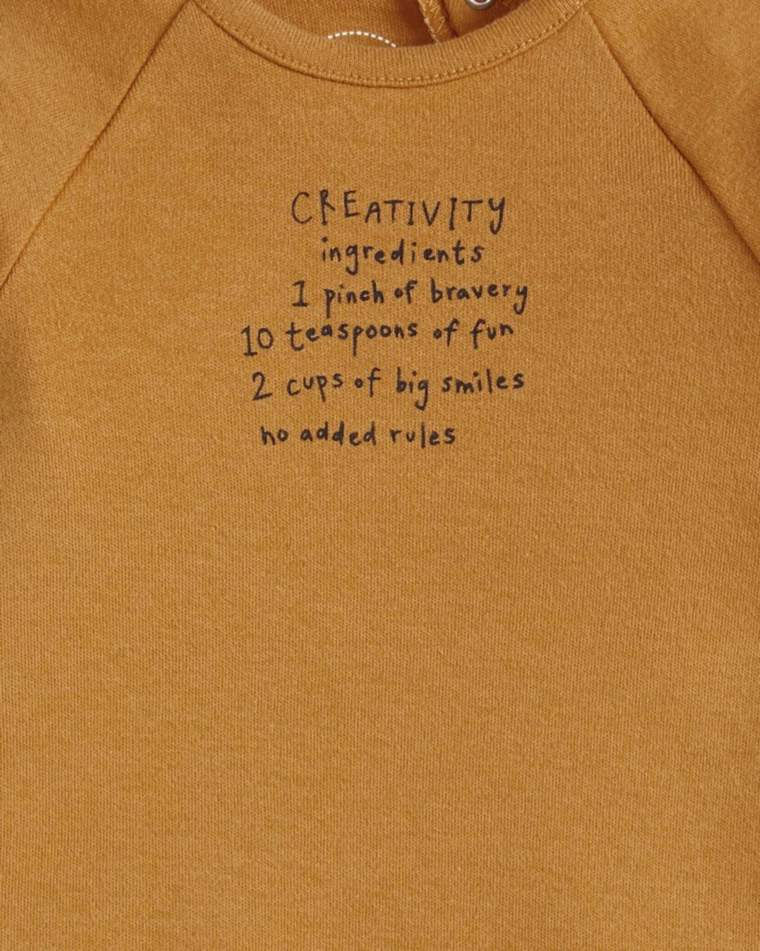 CREATIVITY
ingredients
1 pinch of bravery
10 teaspoons of fun
2 cups of big smiles
no added rules